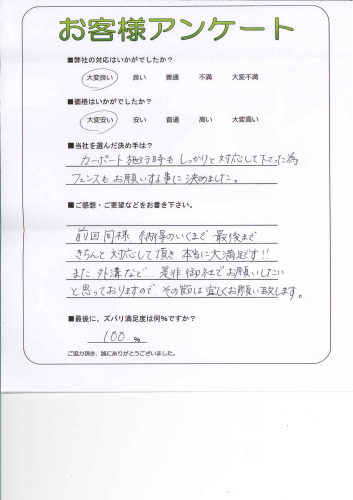 お客様アンケート
■弊社の対応はいかがでしたか？
大変良い 良い 普通 不満 大変不満
■価格はいかがでしたか？
大変安い 安い 普通 高い 大変高い
■当社を選んだ決め手は？
カーポート施行時もしっかりと対応して下さった為
フェンスもお願いする事に決めました。
■ご感想・ご要望などをお書き下さい。
前回同様、納得のいくまで最後まで
きちんと対応して頂き、本当に大満足です!!
また外溝など… 是非御社でお願いしたい
と思っておりますので、その節は宜しくお願い致します。
■最後に、ズバリ満足度は何%ですか？
100 %
ご協力頂き、誠にありがとうございました。